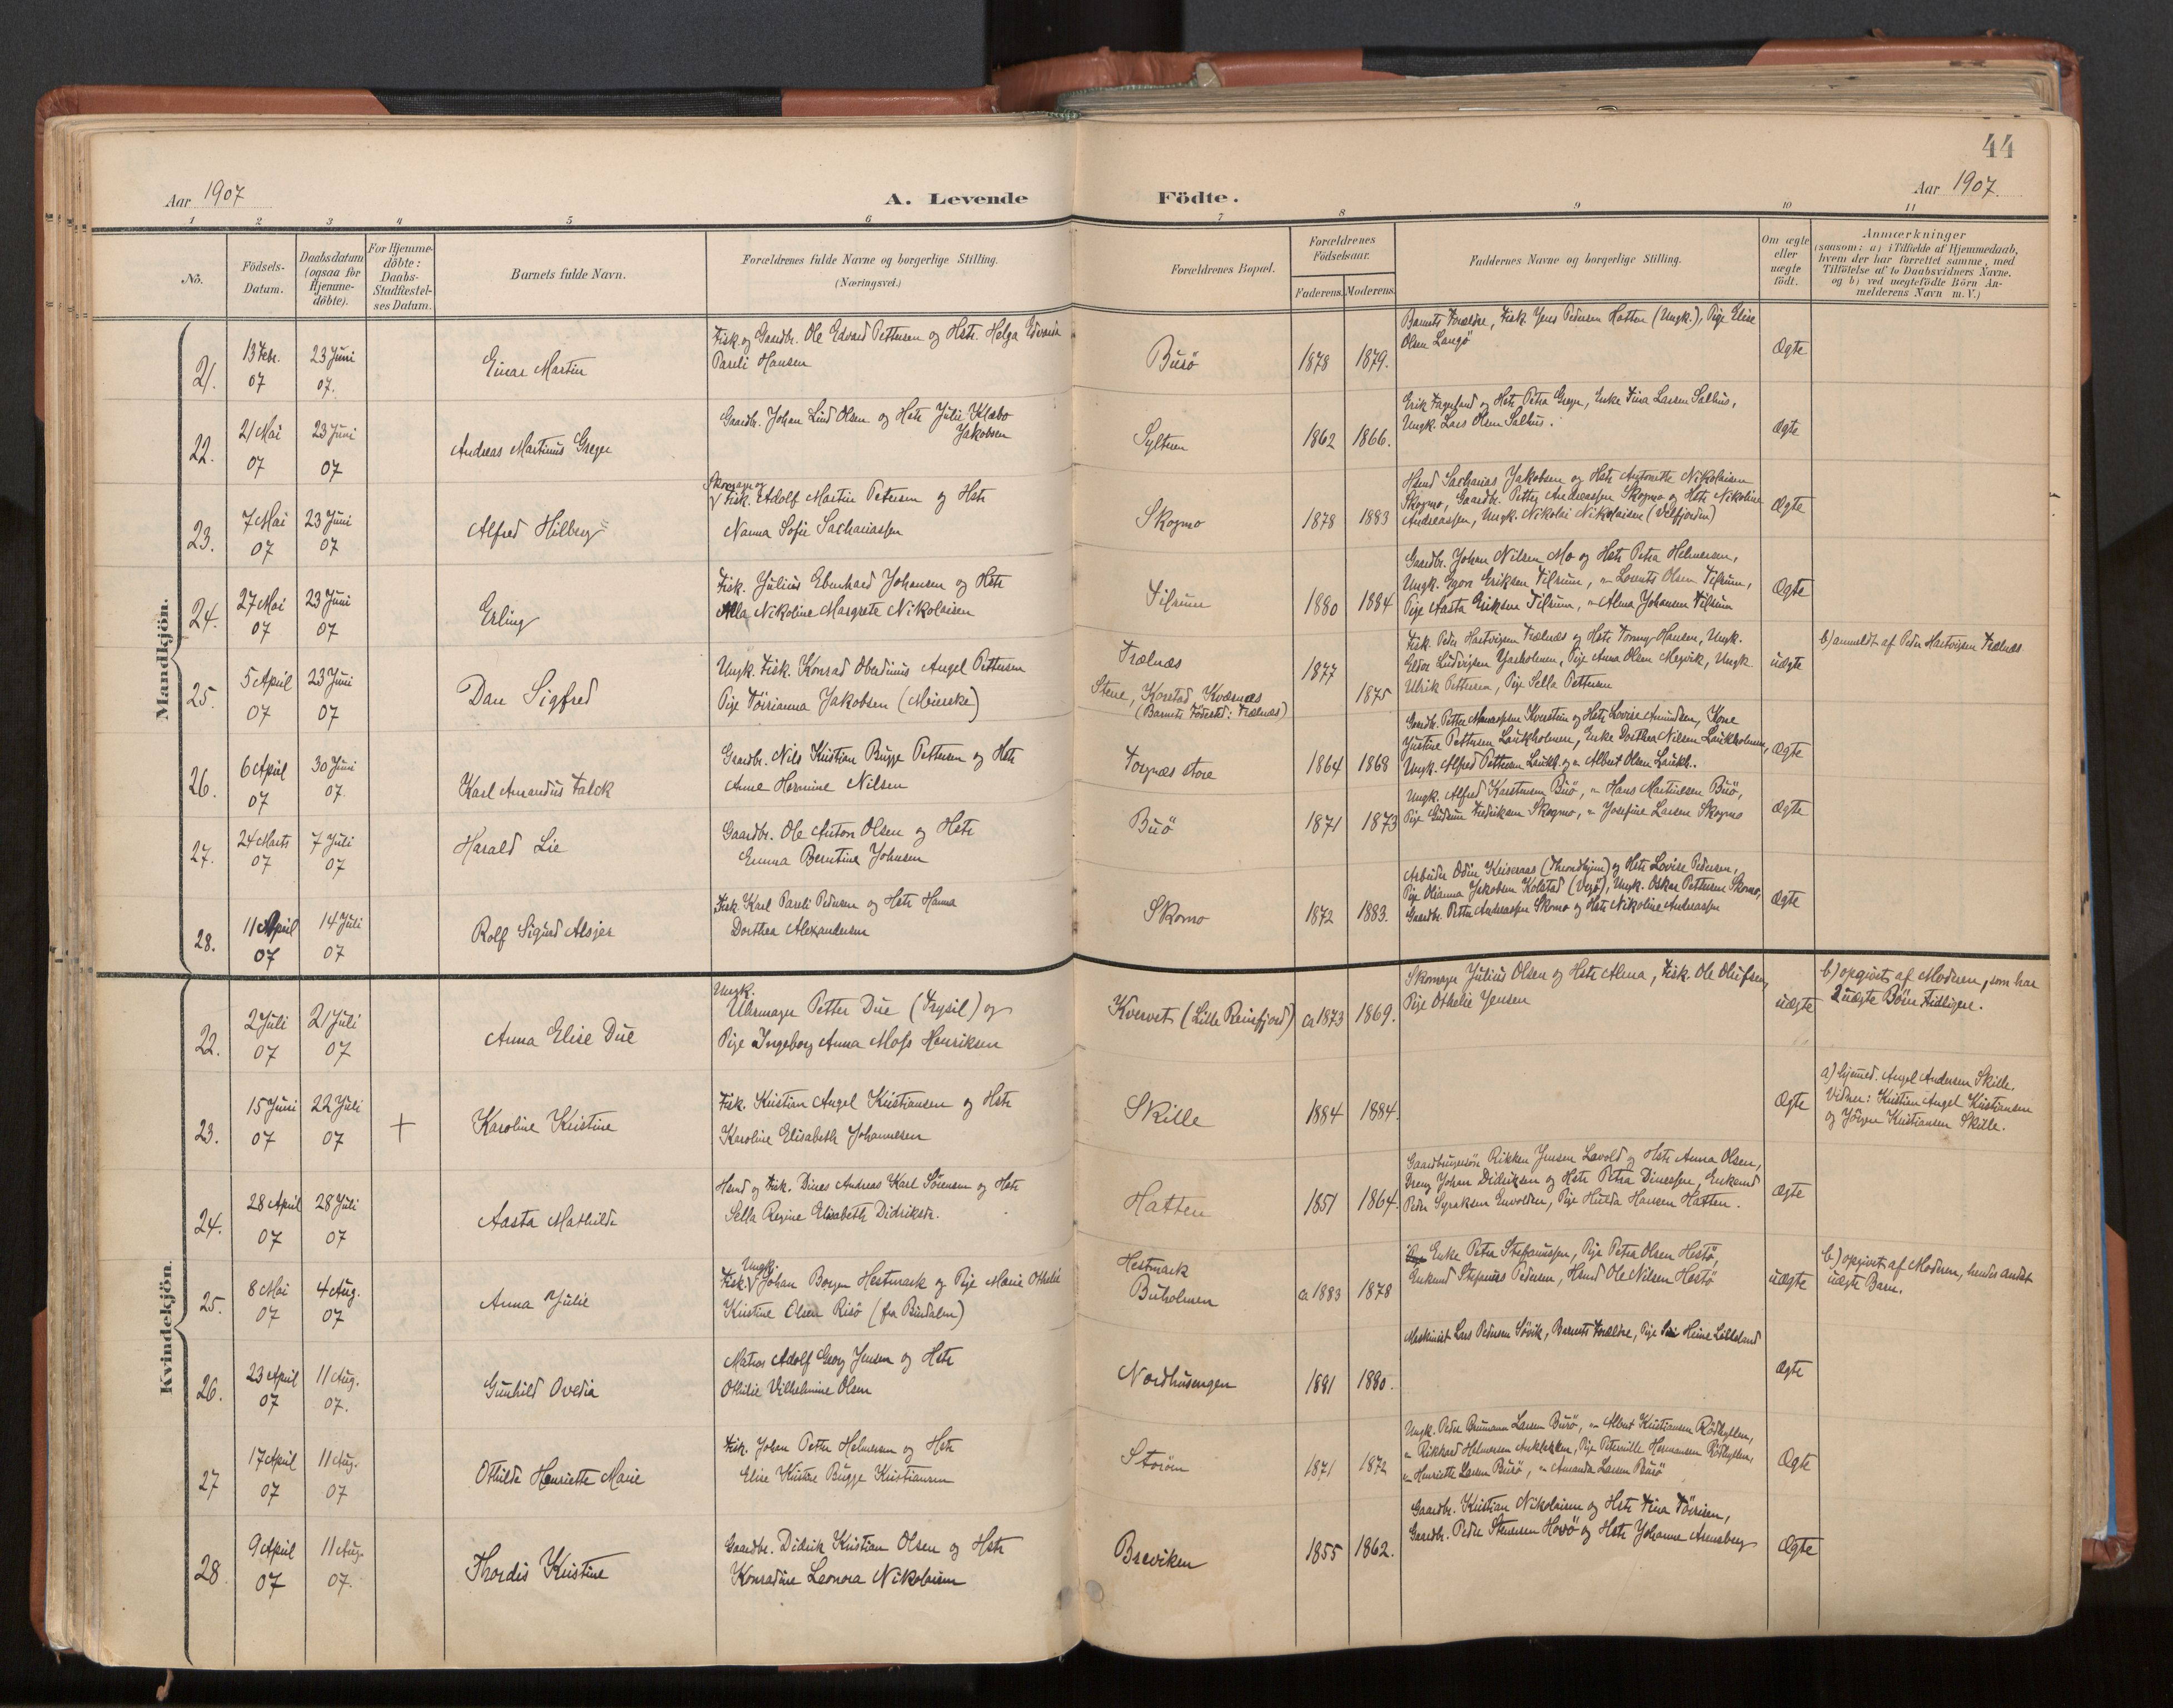 44
Aar 1907
A. Levende Födte.
Aar 1907.
1 2 3 4 5 6 7 8 9 10 11
No.
Födsels-Datum.
Daabsdatum (ogsaa for Hjemme-döbte).
For Hjemme-döbte: Daabs-Stadfæstel-ses Datum.
Barnets fulde Navn.
Forældrenes fulde Navne og borgerlige Stilling.
(Næringsvei.)
Forældrenes Bopæl.
Forældrenes Födselsaar.
Faderens. Moderens.
Faddernes Navne og borgerlige Stilling.
Om ægte eller uægte födt.
Anmærkninger
(saasom: a) i Tilfælde af Hjemmedaab, hvem der har forrettet samme, med Tilföielse af to Daabsvidners Navne. og b) ved uægtefödte Börn An-melderens Navn m. V.)
Mandkjön.
21. 13 Febr. 07 23 Juni 07. Einar Martin
Fisk. og Gaardbr. Ole Edvard Pettersen og Hstr. Helga Edvarda
Pareli Hansen
Burö 1878 1879.
Barnets Forældre, Fisk. Jens Pedersen Hatten (Ungk.), Pige Elise
Olsen Langö
Ægte
22. 21 Mai 07 23 Juni 07 Andreas Martinus Greger
Gaardbr. Johan Lind Olsen og Hstr Julie Klæbo
Jakobsen
Sylten 1862 1866.
Erik Fagerland og Hstr Petra Greger, Enke Fina Larsen Salhus,
Ungk. Lars Olsen Salhus.
Ægte
23. 7 Mai 07 23 Juni 07 Alfred Hilberg
Skomager og
Fisk. Adolf Martin Petersen og Hstr
Nanna Sofie Sachariassen
Skogmo 1878 1883
Hsmd Sacharias Jakobsen og Hstr Antonette Nikolaisen
Skogmo, Gaardbr. Petter Andreassen Skogmo og Hstr Nikoline
Andreassen, Ungk. Nikolai Nikolaisen (Velfjorden)
Ægte
24. 27 Mai 07 23 Juni 07 Erling
Fisk. Julius Eberhard Johansen og Hstr
Alla Nikoline Margrete Nikolaisen
Tilrum 1880 1884
Gaardbr. Johan Nilsen Mo og Hstr Petra Helmersen,
Ungk. Egon Eriksen Tilrum, " Lorents Olsen Tilrum,
Pige Aasta Eriksen Tilrum, " Alma Johansen Tilrum
Ægte
25. 5 April 07 23 Juni 07 Dan Sigfred
Ungk. Fisk. Konrad Obedinus Angel Pettersen
Pige Töirianna Jakobsen (Meierske)
Trælnæs
Stene, Korstad, Kværnæs
(Barnets Födested: Trælnæs)
1877 1875
Fisk. Peder Hartvigsen Trælnæs og Hstr Tommy Hansen, Ungk.
Eldor Ludvigsen Ypsholmen, Pige Anna Olsen Megvik, Ungk
Ulrik Pettersen, Pige Sella Pettersen
uægte
b) anmeldt af Peder Hartvigsen Trælnæs
26. 6 April 07 30 Juni 07. Karl Amandus Falck
Gaardbr. Nils Kristian Bugge Pettersen og Hstr
Anne Hermine Nilsen
Torgnæs store 1864 1868
Gaardbr. Petter Manassesen Kverstein og Hstr Lovise Amundsen, Kone
Justine Pettersen Laukholmen, Enke Dorthea Nilsen Laukholmen,
Ungk. Alfred Pettersen Laukh. og " Albert Olsen Laukh..
Ægte
27. 24 Marts 07 7 Juli 07 Harald Lie
Gaardbr. Ole Anton Olsen og Hstr
Emma Berntine Johnsen
Buö 1871 1873
Ungk. Alfred Karstensen Buö, " Hans Martinesen Buö,
Pige Gudrun Fredriksen Skogmo, " Josefine Larsen Skogmo
Ægte
28. 11 April 07 14 Juli 07 Rolf Sigurd Alsjer
Fisk. Karl Pareli Pedersen og Hstr Hanna
Dorthea Alexandersen
Skomo 1872 1883.
Arbeider Odin Keiseraas (Throndhjem) og Hstr Lovise Pedersen,
Pige Olianna Jakobsen Kolstad (Vegö), Ungk. Oskar Pettersen Skomo,
Gaardbr. Petter Andreassen Skomo og Hstr Nikoline Andreassen
Ægte
Kvindekjön.
22. 2 Juli 07 21 Juli 07 Anna Elise Due
Ungk.
Uhrmager Petter Due (Trysil) og
Pige Ingeborg Anna Moss Henriksen
Kvervet (Lille Reinfjord) ca 1873 1869.
Skomager Julius Olsen og Hstr Alma, Fisk. Ole Olufsen,
Pige Othelie Jensen
uægte
b) opgivet af Moderen, som har
2 uægte Börn tidligere.
23. 15 Juni 07 22 Juli 07 + Karoline Kristine
Fisk. Kristian Angel Kristiansen og Hstr
Karoline Elisabeth Johannesen
Skille 1884 1884.
Ægte
a) hjemmed. Angel Andersen Skille.
Vidner: Kristian Angel Kristiansen
og Jörgen Kristiansen Skille.
24. 28 April 07 28 Juli 07 Aasta Mathilde
Hsmd og Fisk. Dines Andreas Karl Sörensen og Hstr
Sella Regine Elisabeth Didriksdr.
Hatten 1851 1864.
Gaardbrugersön Rikken Jensen Lavold og Hstr Anna Olsen,
Dreng Johan Didriksen og Hstr Petra Dinessen, Enkemd
Peder Syraksen Envolden, Pige Hulda Hansen Hatten.
Ægte
25. 8 Mai 07 4 Aug. 07 Anna Julie
Ungk.
Fisk. Johan Borgen Hestmark og Pige Marie Othelie
Kristine Olsen Risö (fra Bindalen)
Hestmark
Buholmen ca 1883 1878
Enke Petra Stefanussen, Pige Petra Olsen Hestö,
Enkemd Stefanus Pedersen, Hsmd Ole Nilsen Hestö
uægte
b) opgivet af Moderen, hendes andet
uægte Barn.
26. 23 April 07 11 Aug. 07. Gunhild Ovedia
Matros Adolf Georg Jensen og Hstr
Othilie Vilhelmine Olsen
Nordhusengen 1881 1880.
Maskinist Lars Pedersen Sövik, Barnets Forældre, Pige Heine Lilleland
Ægte
27 17 April 07 11 Aug. 07 Othilde Henriette Marie
Fisk. Johan Petter Helmersen og Hstr
Elise Kristine Bugge Kristiansen
Storöen 1871 1872
Ungk. Peder Brumann Larsen Burö, " Albert Kristiansen Rödhyllen,
" Rikhard Helmersen, Pige Peternille Hermansen Rödhyllen,
" Henriette Larsen Burö, " Amanda Larsen Burö
Ægte
28. 9 April 07 11 Aug. 07. Thordis Kristine
Gaardbr. Didrik Kristian Olsen og Hstr
Konradine Leonora Nikolaisen
Breviken 1855 1862.
Gaardbr. Kristian Nikolaisen og Hstr Fina Töirisen,
Gaardbr. Peder Stensen Horö og Hstr Johanne Arensberg
Ægte